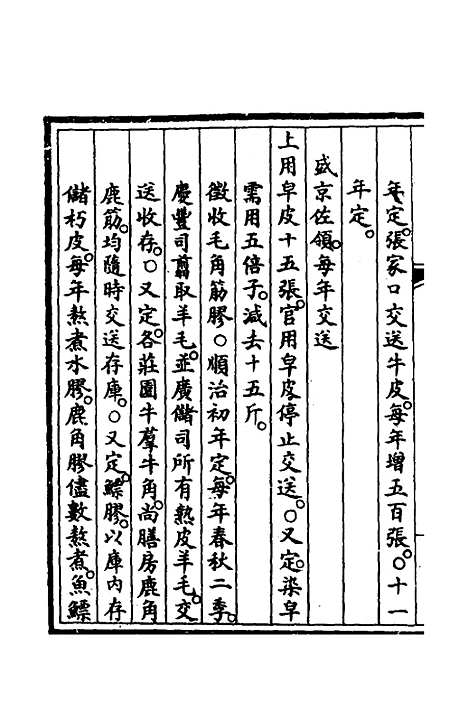 年定。張家口交送牛皮。每年增五百張。○十一
年定。
盛京佐領。每年交送
上用皁皮十五張。官用皁皮停止交送。○又定。染皁
需用五倍子。減去十五斤。
徵收毛角筋膠○順治初年定。每年春秋二季。
慶豐司翦取羊毛。並廣儲司所有熟皮羊毛。交
送收存。○又定。各莊園牛羣牛角。尚膳房鹿角
鹿筋。均隨時交送存庫。○又定。鰾膠。以庫內存
儲朽皮。每年熬煮水膠。鹿角膠儘數熬煮。魚鰾